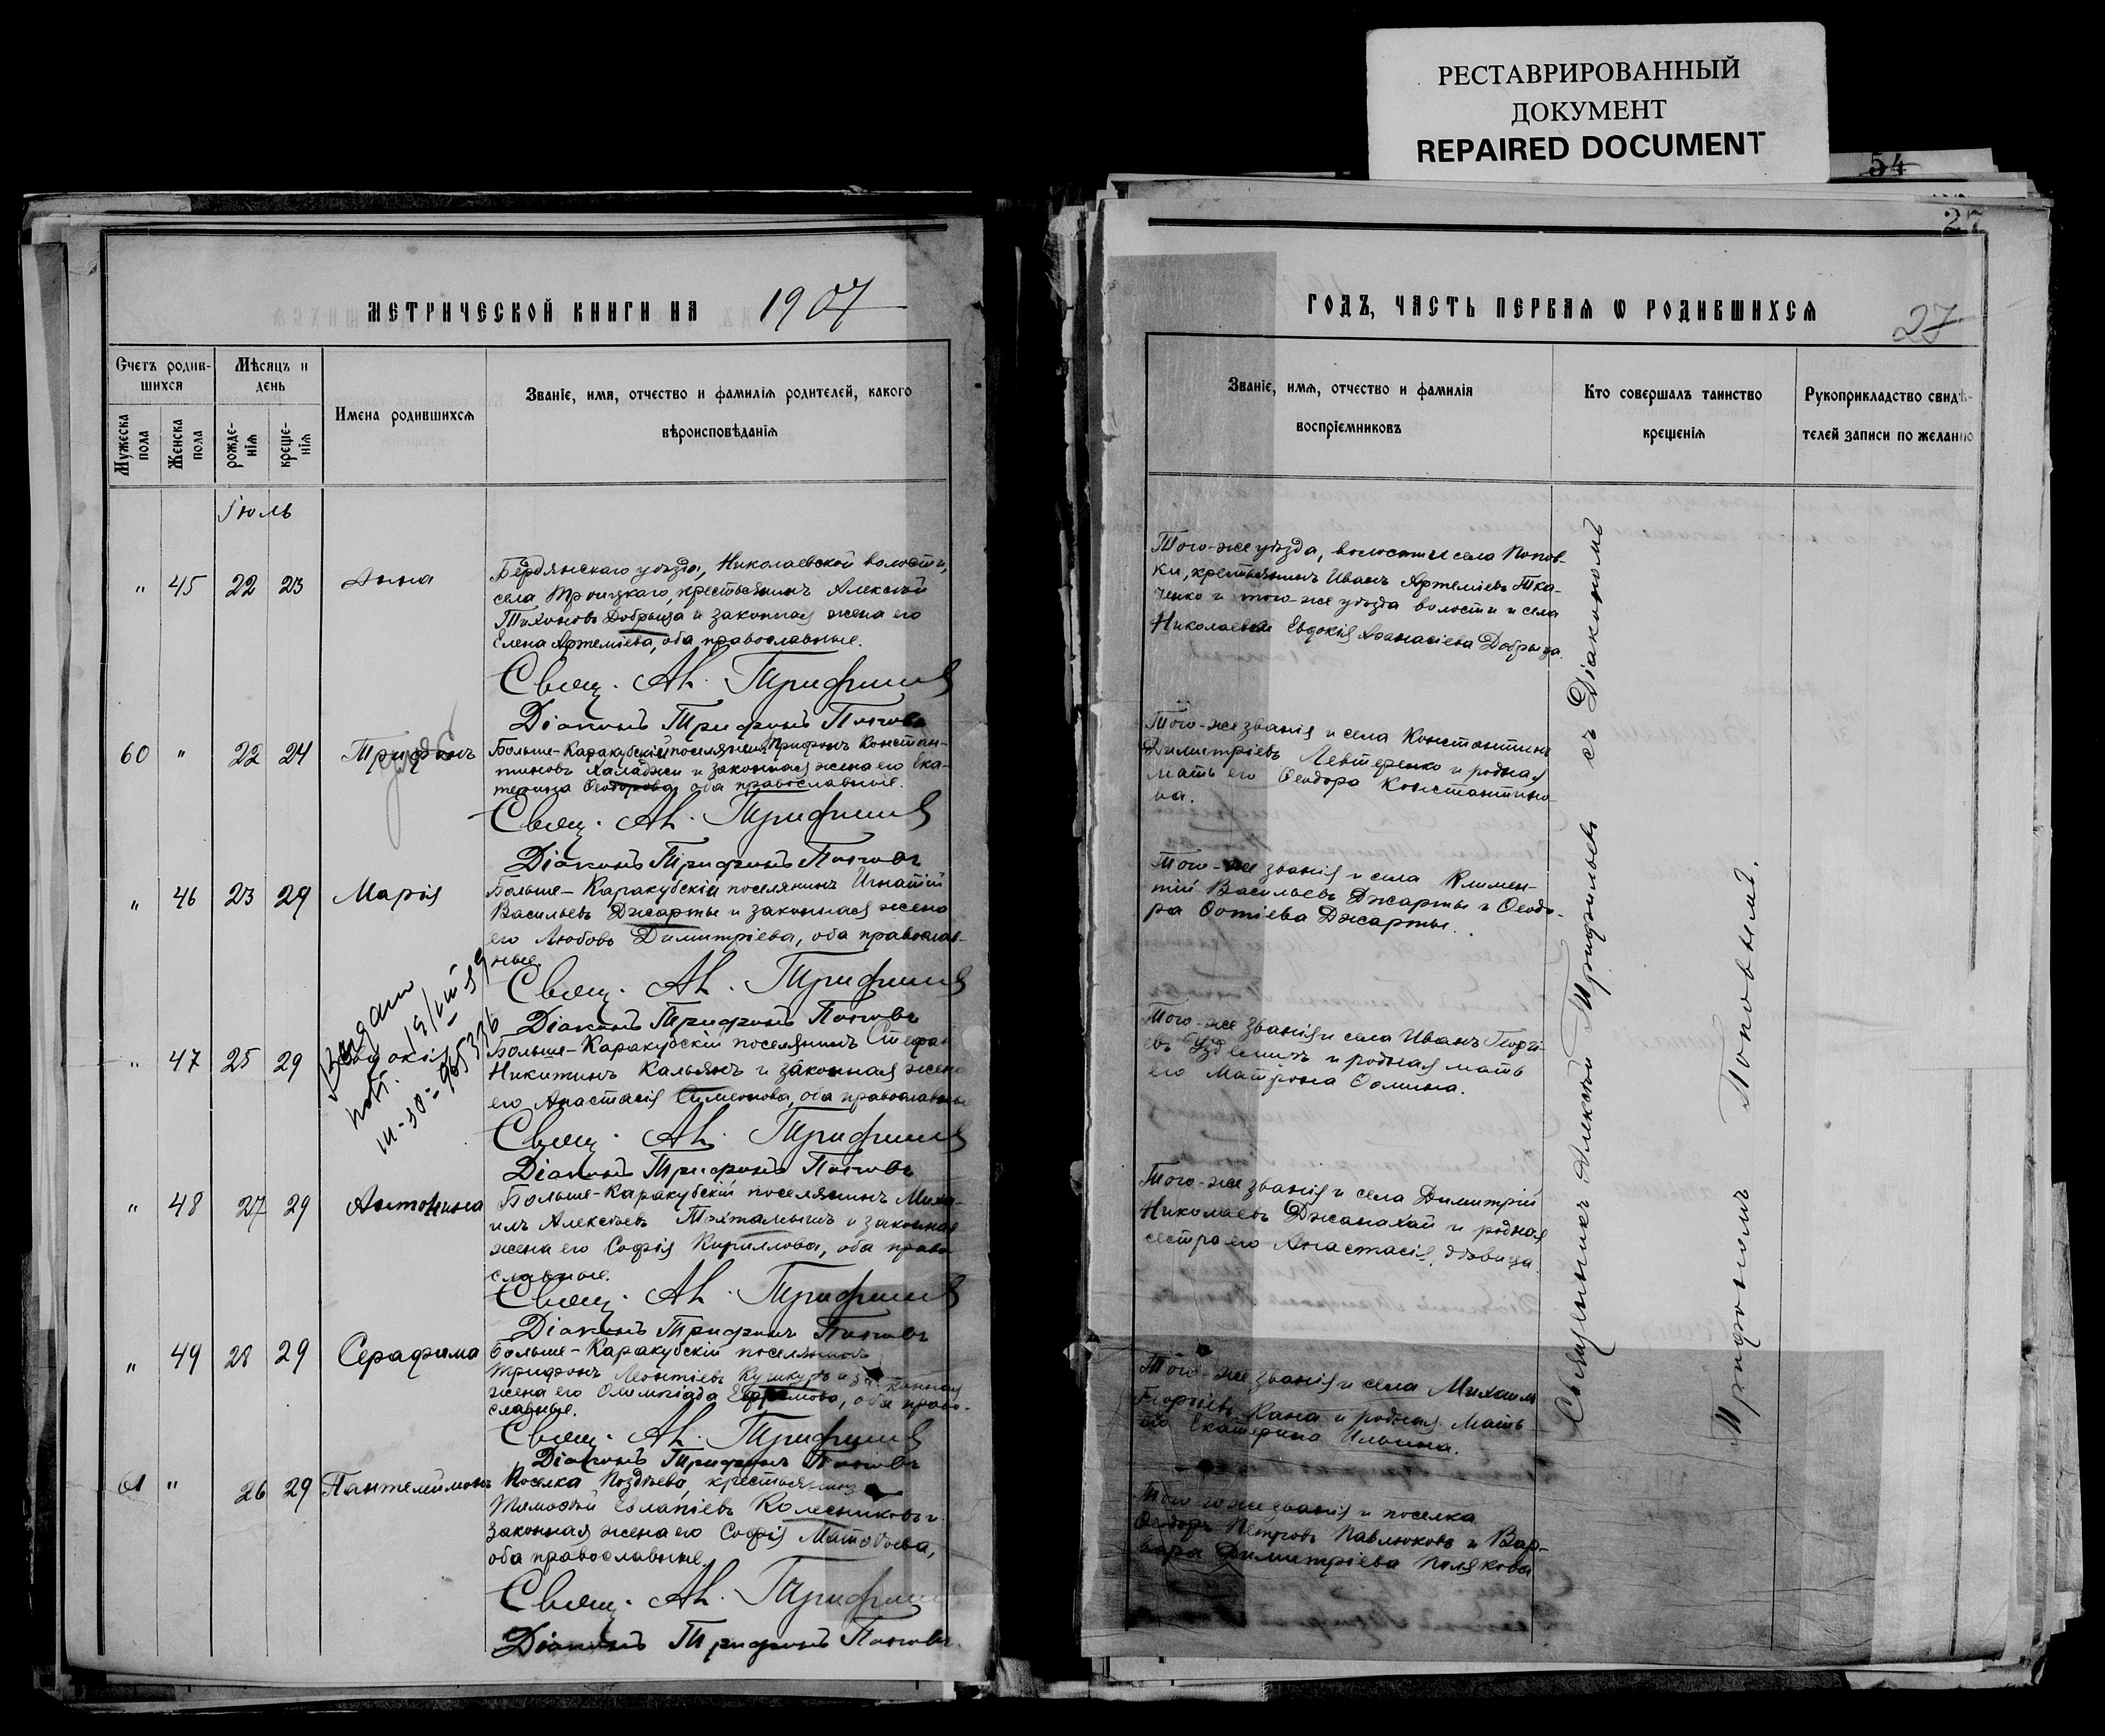 РЕСТАВРИРОВАННЫЙ
ДОКУМЕНТ
REPAIRED DOCUMENT
54
27
МЕТРИЧЕСКОЙ КНИГИ НА 1907
Счетъ родив-
шихся
Мѣсяцъ и
день
Мужеска
пола
Женска
пола
рожде-
нія
креще-
нія
Имена родившихся
Званіе, имя, отчество и фамилія родителей, какого
вѣроисповѣданія
Іюль
" 45 22 23 Анна
Бердянскаго уѣзда, Николаевской волости,
села Троицкаго, крестьянинъ Алексѣй
Тихоновъ Добрыца и законная жена его
Елена Артеміева, оба православные.
Свящ. Ал. Трифильев
Діаконъ Трифонъ Поповъ
60 " 22 24 Трифонъ
Больше-Каракубскій поселянинъ Трифонъ Констан-
тиновъ Халаджи и законная жена его Ека-
терина Ѳеодорова, оба православные.
Свящ. Ал. Трифильев
Діаконъ Трифонъ Поповъ
" 46 23 29 Марія
Больше-Каракубскій поселянинъ Игнатій
Васильевъ Джарты и законная жена
его Любовь Димитріева, оба православ-
ные.
Свящ. Ал. Трифильев
Діаконъ Трифонъ Поповъ
" 47 25 29 Евдокія
Больше-Каракубскій поселянинъ Стефан
Никитинъ Кальянъ и законная жена
его Анастасія Симеонова, оба православные
Свящ. Ал. Трифильев
Діаконъ Трифонъ Поповъ
" 48 27 29 Антонина
Больше-Каракубскій поселянинъ Миха-
илъ Алексѣевъ Тохтамышъ и законная
жена его Софія Кириллова, оба право
славные.
Свящ. Ал. Трифильев
Діаконъ Трифонъ Поповъ
" 49 28 29 Серафима
Больше-Каракубскій поселянинъ
Трифонъ Леонтіевъ и законная
жена его Олимпіада Ефремова, оба право-
славные.
Свящ. Ал. Трифильев
Діаконъ Трифонъ Поповъ
61 " 26 29 Пантелеймонъ
Поселка Поздѣева, крестьянинъ
Тимофей Евлапіевъ Колесниковъ и
законная жена его Софія Матѳѣева,
оба православные.
Свящ. Ал. Трифильев
Діаконъ Трифонъ Поповъ
ГОДЪ, ЧАСТЬ ПЕРВАЯ Ѡ РОДИВШИХСЯ
27
Званіе, имя, отчество и фамилія
воспріемниковъ
Кто совершалъ таинство
крещенія
Рукоприкладство свидѣ-
телей записи по желанію
Того-же уѣзда, волости и села Попов-
ки, крестьянинъ Иванъ Артеміевъ Тка-
ченко и того-же уѣзда волости и села
Николаевки Евдокія Аѳанасіева Добрыца.
Того-же званія и села Константинъ
Димитріевъ Левтеренко и родная
мать его Ѳеодора Константино-
ва.
Того-же званія и села Климен-
тій Васильевъ Джарты и Ѳеодо-
ра Ѳотіева Джарты.
Того-же званія и села Иванъ Георгі-
евъ и родная мать
его Матрона Ѳомина.
Того-же званія и села Димитрій
Николаевъ Джанахай и родная
сестра его Анастасія, дѣвица.
Того-же званія и села Михаилъ
Георгіевъ Кана и родная мать
его Екатерина Ильина.
Того-же званія и поселка
Ѳеодоръ Петровъ Павлюковъ и Вар-
вара Димитріева Полякова
Священникъ Алексѣй Трифильевъ съ Діакономъ
Трифономъ Поповымъ.